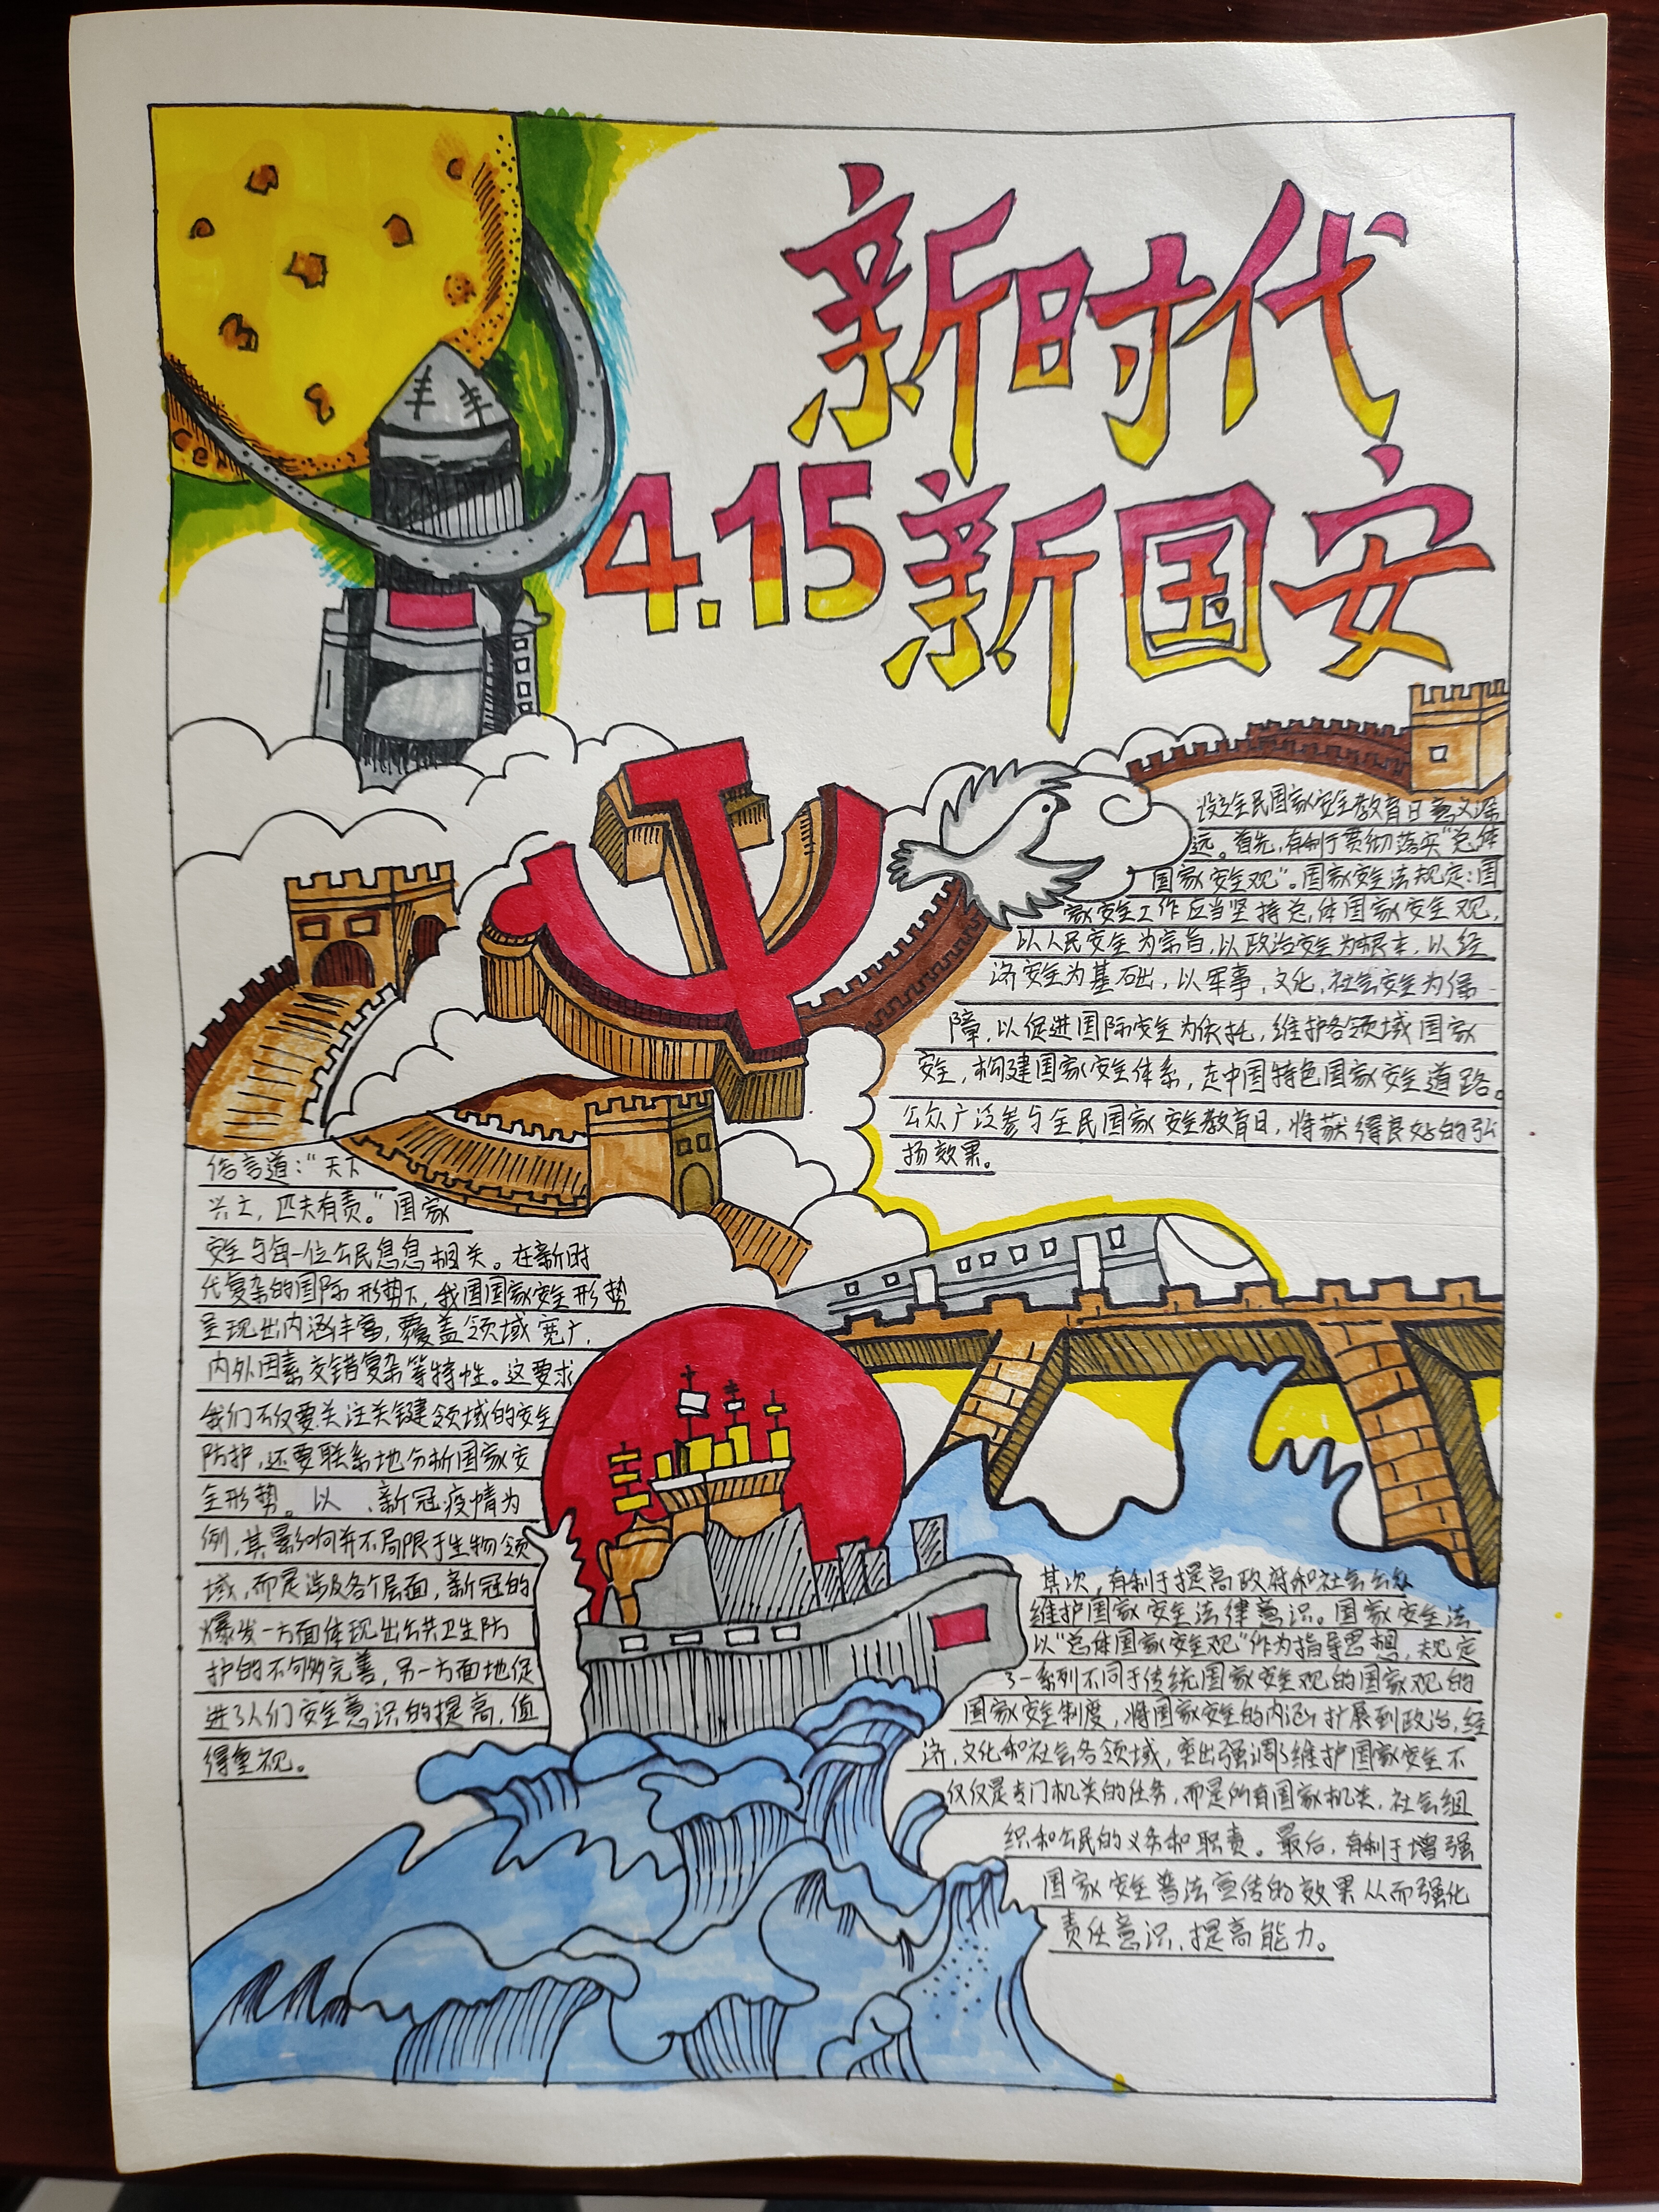 新时代
4.15新国安
设立全民国家安全教育日意义深
远。首先,有利于贯彻落实“总体
国家安全观”。国家安全法规定:国
家安全工作应当坚持总体国家安全观,
以人民安全为宗旨,以政治安全为根本,以经
济安全为基础,以军事、文化、社会安全为保
障,以促进国际安全为依托,维护各领域国家
安全,构建国家安全体系,走中国特色国家安全道路。
公众广泛参与全民国家安全教育日,将获得良好的弘
扬效果。
俗言道:“天下
兴亡,匹夫有责。”国家
安全与每一位公民息息相关。在新时
代复杂的国际形势下,我国国家安全形势
呈现出内涵丰富,覆盖领域宽广,
内外因素交错复杂等特性。这要求
我们不仅要关注关键领域的安全
防护,还要联系地分析国家安
全形势。以、新冠疫情为
例,其影响并不局限于生物领
域,而是涉及各个层面,新冠的
爆发一方面体现出公共卫生防
护的不够完善,另一方面也促
进了人们安全意识的提高,值
得重视。
其次,有利于提高政府和社会公众
维护国家安全法律意识。国家安全法
以“总体国家安全观”作为指导思想,规定
了一系列不同于传统国家安全观的国家观的
国家安全制度,将国家安全的内涵扩展到政治、经
济、文化和社会各领域,突出强调了维护国家安全不
仅仅是专门机关的任务,而是所有国家机关、社会组
织和公民的义务和职责。最后,有利于增强
国家安全普法宣传的效果从而强化
责任意识、提高能力。